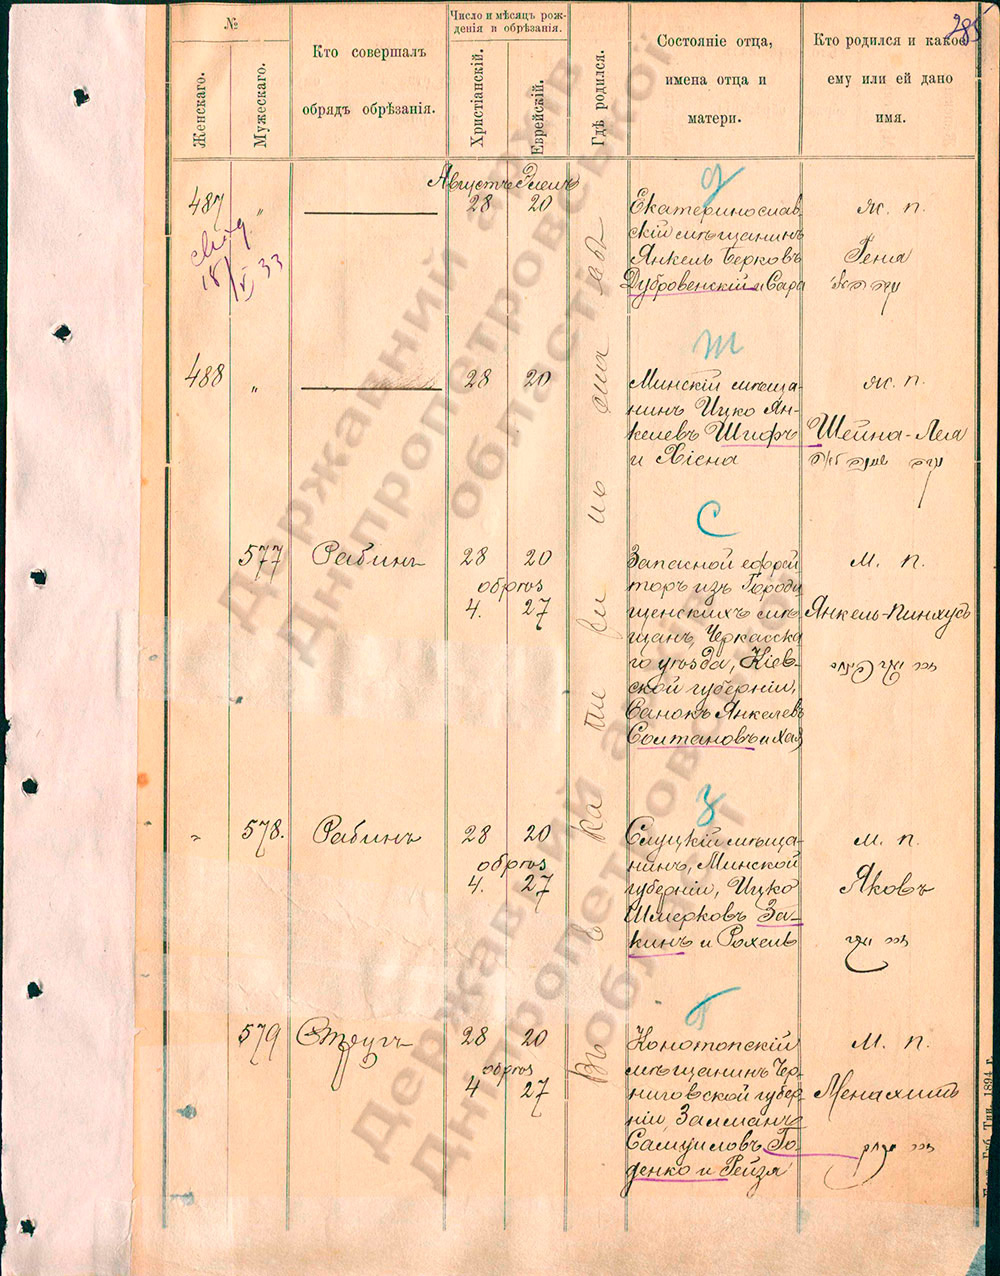 285
№
Женскаго.
Мужескаго.
Кто совершалъ
обрядъ обрѣзанія.
Число и мѣсяцъ рож-
денія и обрѣзанія.
Христіанскій.
Еврейскій.
Гдѣ родился.
Состояніе отца,
имена отца и
матери.
Кто родился и какое
ему или ей дано
имя.
Августъ Элелъ
487 „ 28 20
Д
Екатеринослав-
скій мѣщанинъ
Янкель Берковъ
Дубровенскій и Сара
ж. п.
Геня
18/VI 33
488 „ 28 20
Ш
Минскій мѣща-
нинъ Ицко Ян-
келевъ Шифъ
и Хіена
ж. п.
Шейна-Лея
577 Рабинъ 28 20
обрѣз
4. 27
С
Запасной ефрей
торъ изъ Городи
щенскихъ мѣ
щанъ, Черкасска
го уѣзда, Кіев-
ской губерніи,
Янкелевъ
Солтановъ и Хая
м. п.
Янкель-Пинхусъ
„ 578. Рабинъ 28 20
обрѣз
4. 27
З
Слуцкій мѣща-
нинъ, Минской
губерніи, Ицко
Шмерковъ За-
кинъ и Рохель
м. п.
Яковъ
579 28 20
обрѣз
4 27
Г
Конотопскій
мѣщанинъ Чер-
ниговской губер
ніи, Залманъ
Самуиловъ Го-
денко и Рейзя
м. п.
Въ Екатеринославѣ
Державний архів
Дніпропетровської
області
Державний архів
Дніпропетровської
області
Губ. Тип. 1894 г.